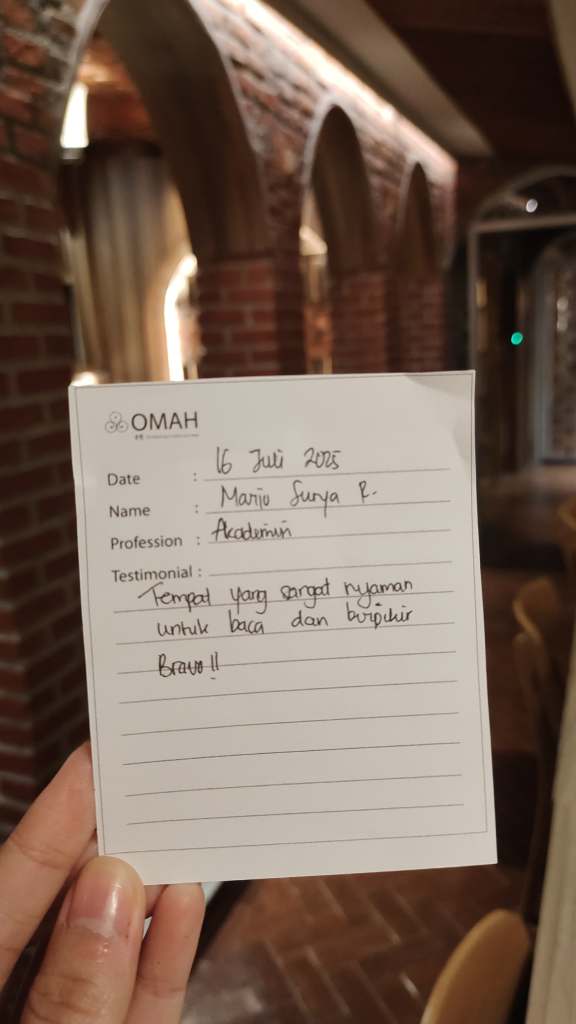 OMAH
Date : 16 Juli 2025
Name : Mario Surya R.
Profession : Akademisi
Testimonial :
Tempat yang sangat nyaman
untuk baca dan berpikir
Bravo!!